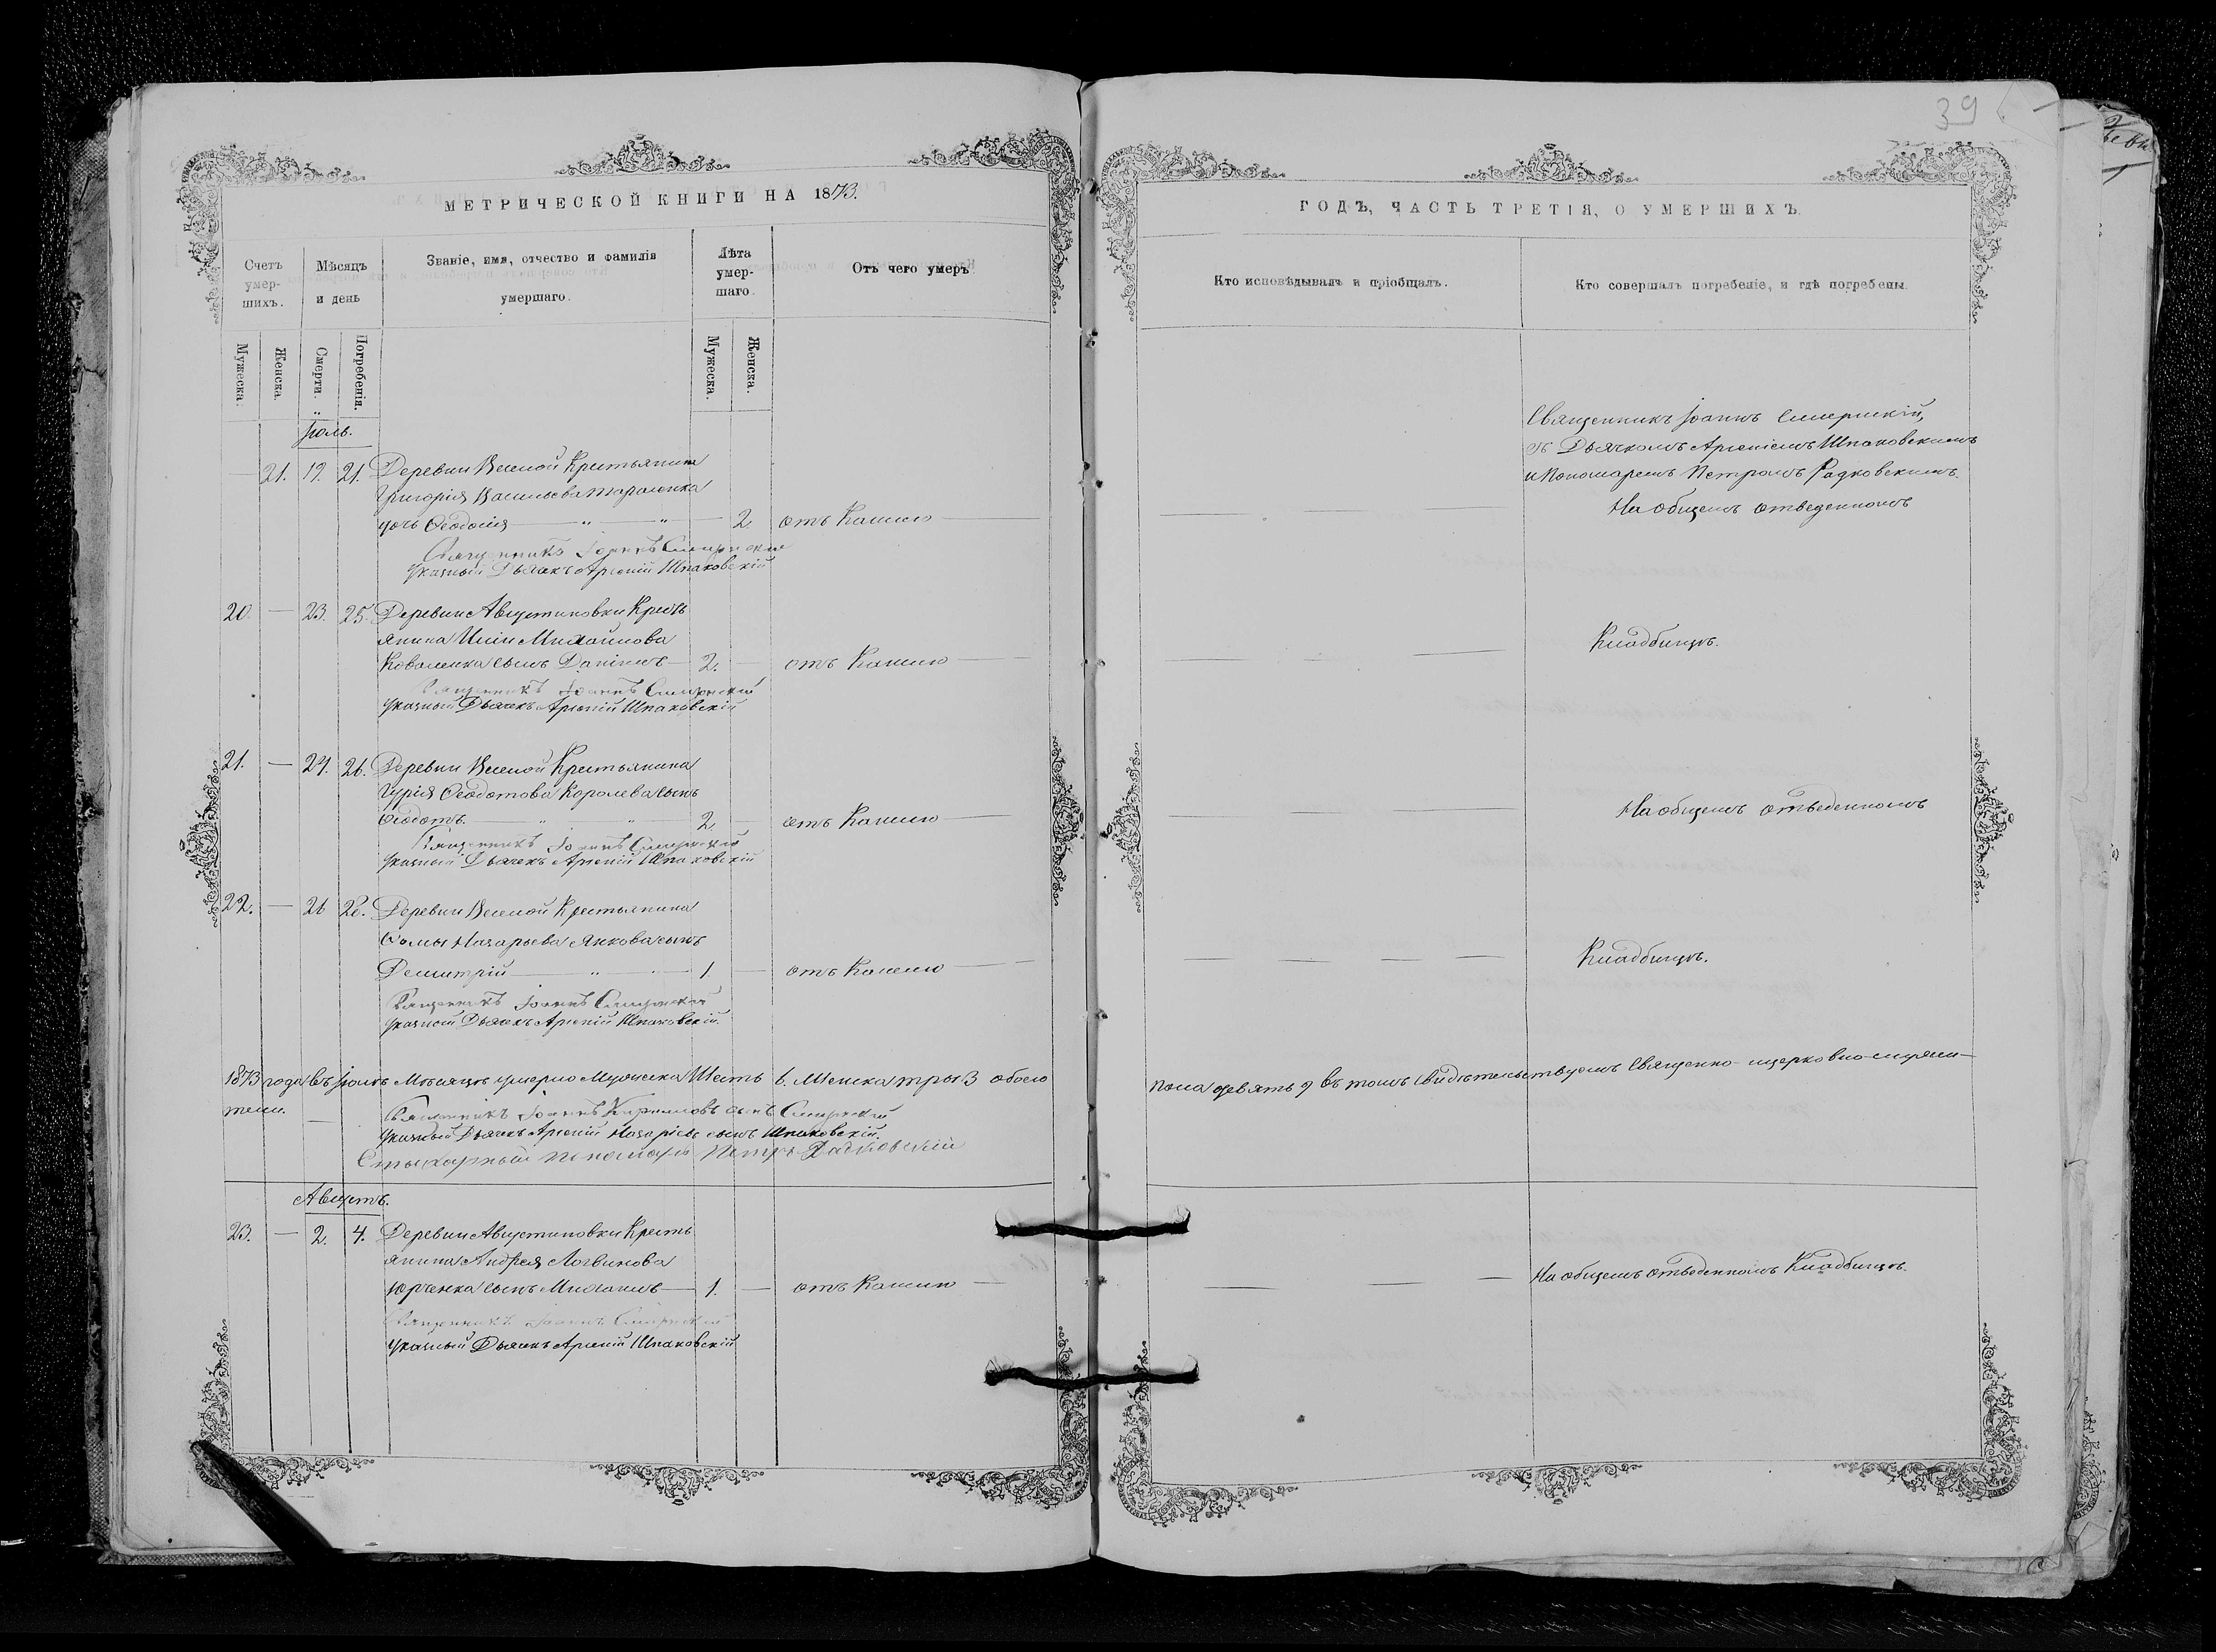 МЕТРИЧЕСКОЙ КНИГИ НА 1873.
Счетъ умер-шихъ.
Мѣсяцъ и день
Званіе, имя, отчество и фамилія умершаго.
Лѣта умер-шаго.
Отъ чего умеръ
Мужеска.
Женска.
Смерти.
Погребенія.
Мужеска.
Женска.
Іюль.
— 21. 19. 21. Деревни Веселой Крестьянина
Григорія Васильева
дочь Ѳеодосія — " — " — 2 отъ Кашлю
Священникъ Іоаннъ
Указный Дьячекъ Арсеній Шпаковскій
20. — 23. 25. Деревни Августиновки Кресть
янина Михайлова
Коваленка сынъ Даніилъ — 2. — отъ Кашлю
Священникъ Іоаннъ
Указный Дьячекъ Арсеній Шпаковскій
21. — 24. 26. Деревни Веселой Крестьянина
Гурія Ѳеодотова Королева сынъ
Ѳеодотъ. — " — " — 2. — отъ Кашлю
Священникъ Іоаннъ
Указный Дьячекъ Арсеній Шпаковскій
22. — 26 28. Деревни Веселой Крестьянина
Ѳомы Назарьева Янкова сынъ
Димитрій — " — " — 1. — отъ Кашлю
Священникъ Іоаннъ
Указный Дьячекъ Арсеній Шпаковскій.
1873 года въ Іюлѣ Мѣсяцѣ умерло Мужеска Шесть 6. Женска три 3 обоего
тели.
Священникъ Іоаннъ Кирилловъ сынъ
Указный Дьячекъ Арсеній Назаріевъ сынъ Шпаковскій.
Стихарный пономарь Петръ Радковскій
Августъ.
23. — 2. 4. Деревни Августиновки Кресть
янина Андрея Логвинова
Юрченка сынъ Михаилъ — 1. — отъ Кашлю
Священникъ Іоаннъ
Указный Дьячекъ Арсеній Шпаковскій
39
ГОДЪ, ЧАСТЬ ТРЕТІЯ, О УМЕРШИХЪ.
Кто исповѣдывалъ и пріобщалъ.
Кто совершалъ погребеніе, и гдѣ погребены.
Священникъ Іоаннъ
съ Дьячкомъ Арсеніемъ Шпаковскимъ
и Пономаремъ Петромъ Радковскимъ.
На общемъ отведенномъ
Кладбищѣ.
На общемъ отведенномъ
Кладбищѣ.
пола девять 9 въ томъ свидѣтельствуемъ Священно-церковно-служи-
На общемъ отведенномъ Кладбищѣ.